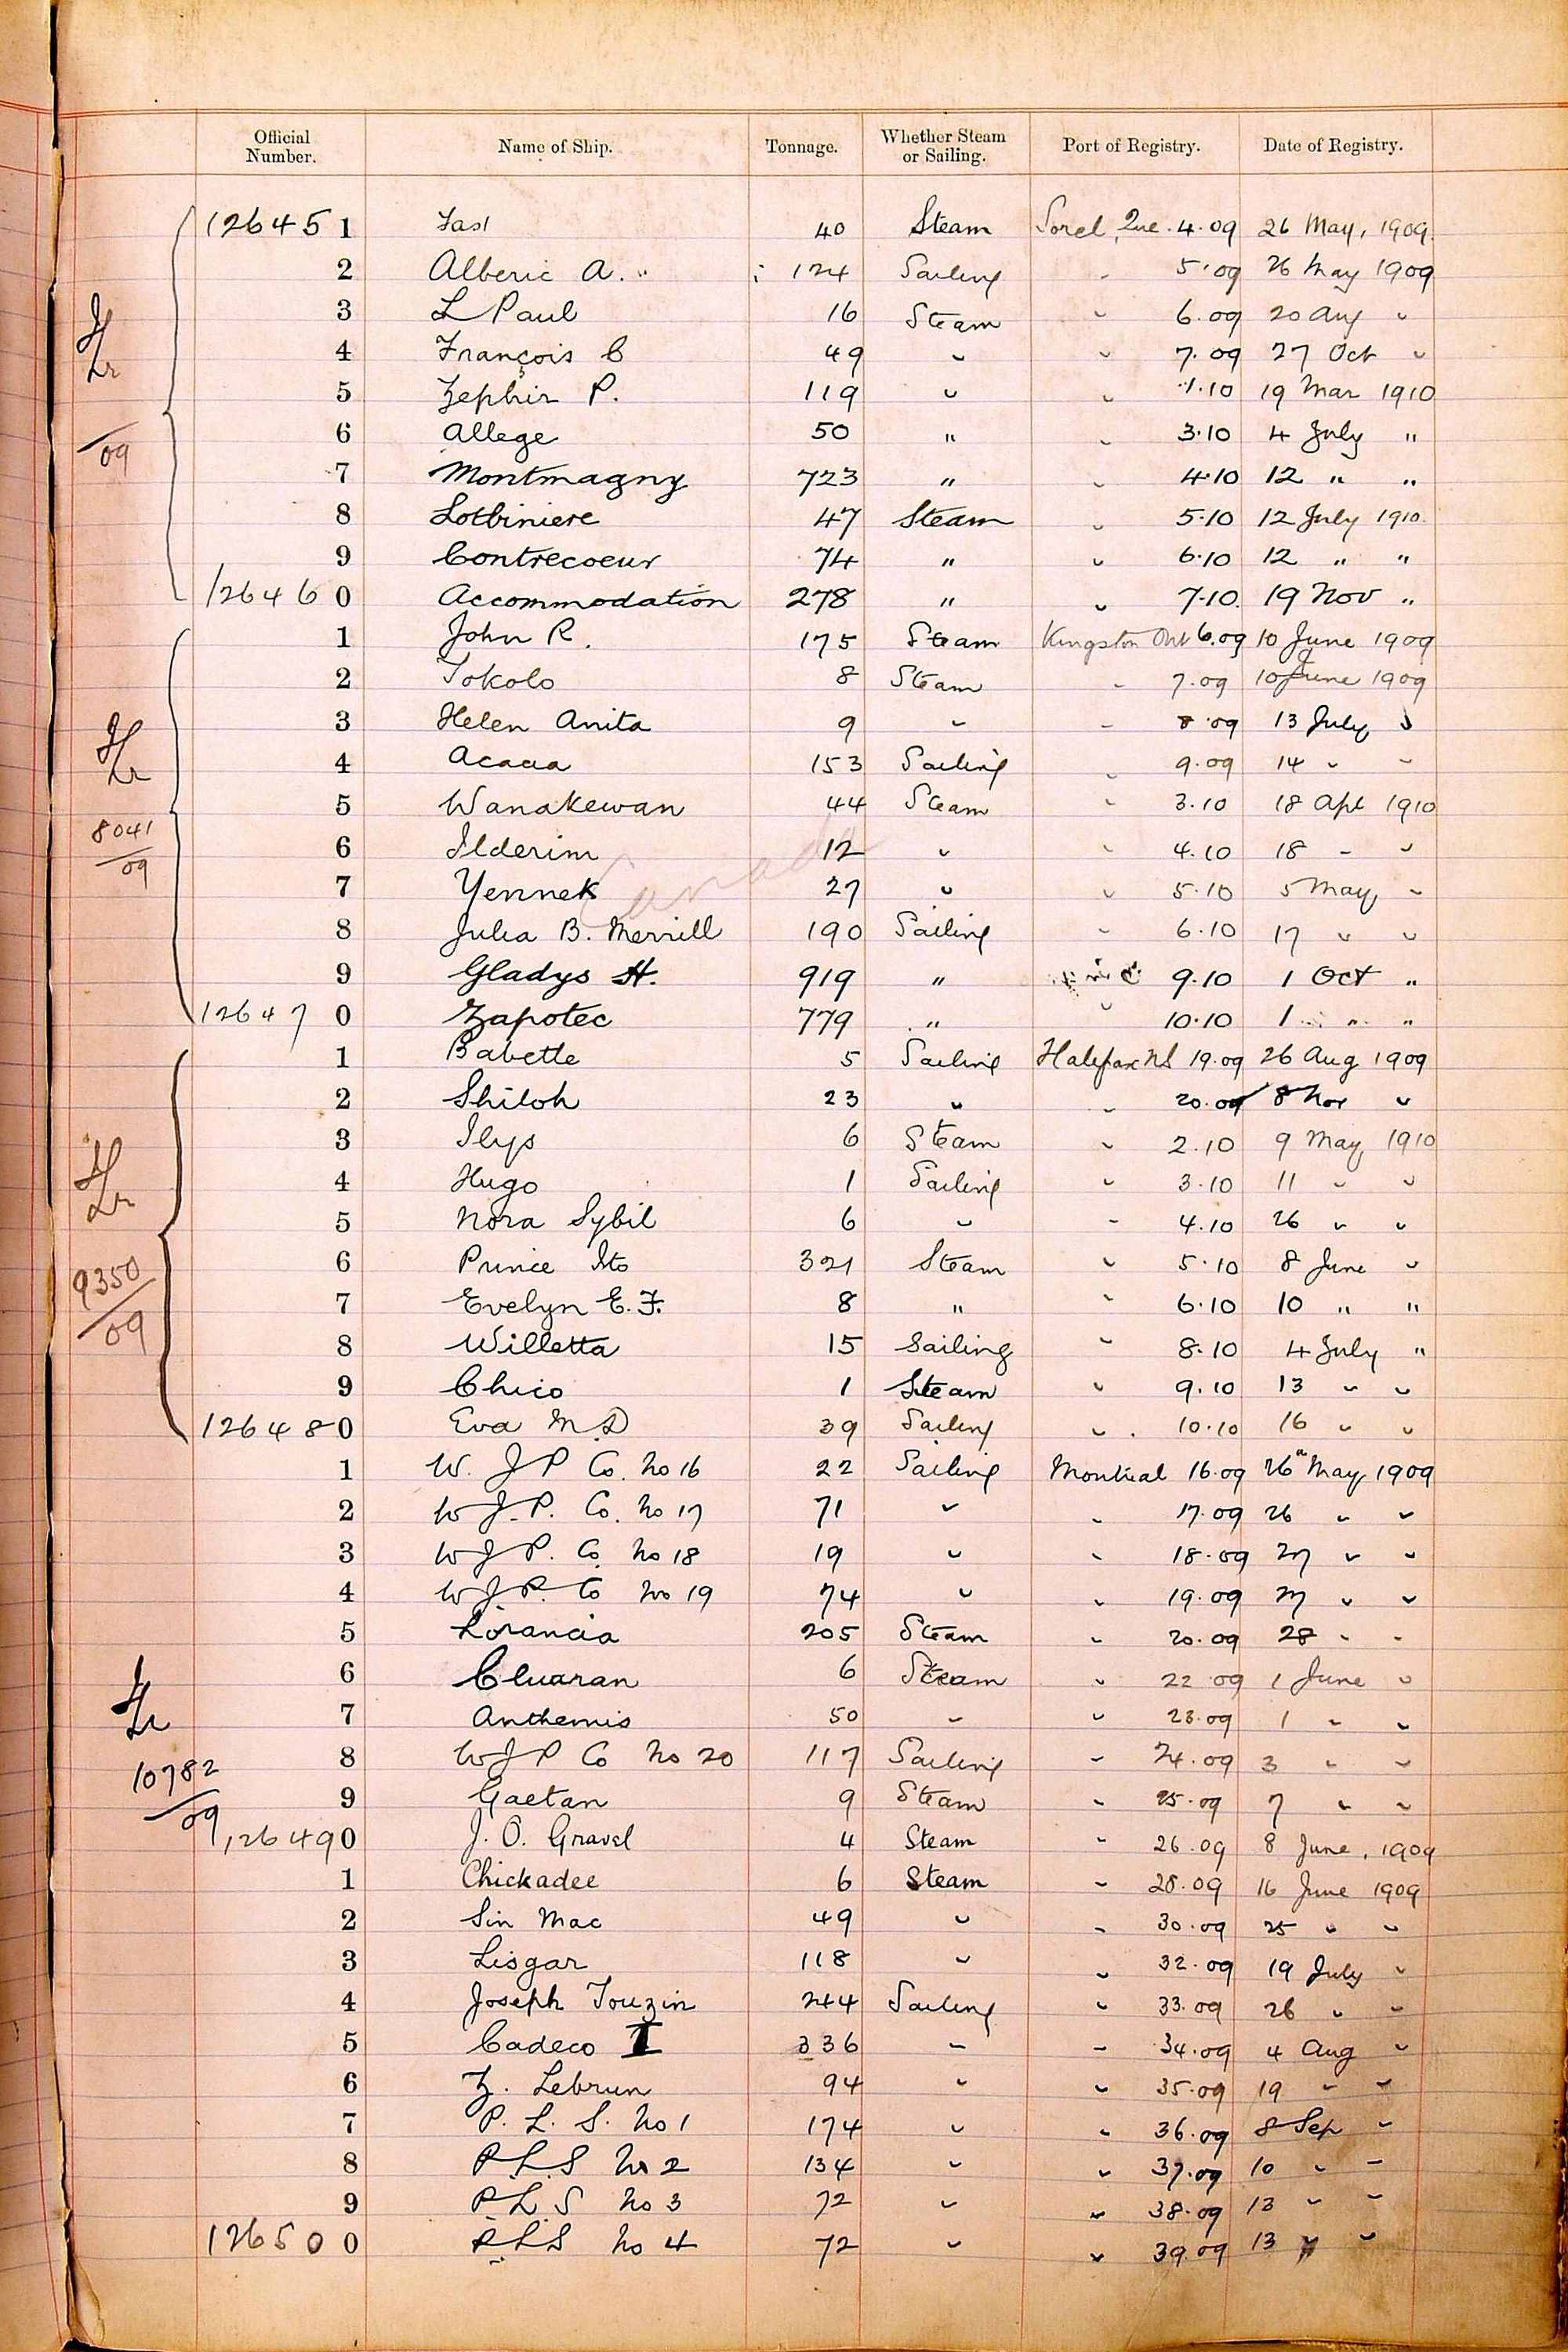 Official Number. Name of Ship. Tonnage. Whether Steam or Sailing. Port of Registry. Date of Registry.
126451 Fast 40 Steam Sorel, Que. 4.09 26 May, 1909.
2 Alberic A. " 124 Sailing " 5.09 26 May 1909
3 L Paul 16 Steam " 6.09 20 Aug "
4 François C 49 " " 7.09 27 Oct "
5 Zephir P. 119 " " 1.10 19 Mar 1910
6 Allege 50 " " 3.10 4 July "
/09
7 Montmagny 723 " " 4.10 12 " "
8 Lotbiniere 47 Steam " 5.10 12 July 1910.
9 Contrecoeur 74 " " 6.10 12 " "
126460 Accommodation 278 " " 7.10. 19 Nov "
1 John R. 175 Steam Kingston Ont 6.09 10 June 1909
2 Tokolo 8 Steam " 7.09 10 June 1909
3 Helen Anita 9 " " 8.09 13 July "
4 Acacia 153 Sailing " 9.09 14 " "
5 Wanakewan 44 Steam " 3.10 18 Apl 1910
8041/09
6 Ilderim 12 " " 4.10 18 " "
Canada
7 Yennek 27 " " 5.10 5 May "
8 Julia B. Merrill 190 Sailing " 6.10 17 " "
9 Gladys H. 919 " 9.10 1 Oct "
126470 Zapotec 779 " " 10.10 1 " "
1 Babette 5 Sailing Halifax NS 19.09 26 Aug 1909
2 Shiloh 23 " " 20.09 8 Nov "
3 Ilys 6 Steam " 2.10 9 May 1910
4 Hugo 1 Sailing " 3.10 11 " "
5 Nora Sybil 6 " " 4.10 26 " "
6 Prince Ito 321 Steam " 5.10 8 June "
9350/09
7 Evelyn E. F. 8 " " 6.10 10 " "
8 Willetta 15 Sailing " 8.10 4 July "
9 Chico 1 Steam " 9.10 13 " "
126480 Eva M D 39 Sailing " 10.10 16 " "
1 W. J P Co. No 16 22 Sailing Montreal 16.09 26 May 1909
2 W J. P. Co. No 17 71 " " 17.09 26 " "
3 W J P. Co. No 18 19 " " 18.09 27 " "
4 W J P. Co No 19 74 " " 19.09 27 " "
5 Lorancia 205 Steam " 20.09 28 " "
6 Cluaran 6 Steam " 22 09 1 June "
7 Anthemis 50 " " 23.09 1 " "
8 W J P Co No 20 117 Sailing " 24.09 3 " "
10782/09
9 Gaetan 9 Steam " 25.09 7 " "
126490 J. O. Gravel 4 Steam " 26.09 8 June, 1909
1 Chickadee 6 Steam " 28.09 16 June 1909
2 Sin Mac 49 " " 30.09 25 " "
3 Lisgar 118 " " 32.09 19 July "
4 Joseph Touzin 244 Sailing " 33.09 26 " "
5 Cadeco I 336 " " 34.09 4 Aug "
6 Z. Lebrun 94 " " 35.09 19 " "
7 P. L. S. No 1 174 " " 36.09 8 Sep "
8 P.L.S No 2 134 " " 37.09 10 " "
9 P.L.S No 3 72 " " 38.09 13 " "
126500 P.L.S No 4 72 " " 39.09 13 " "